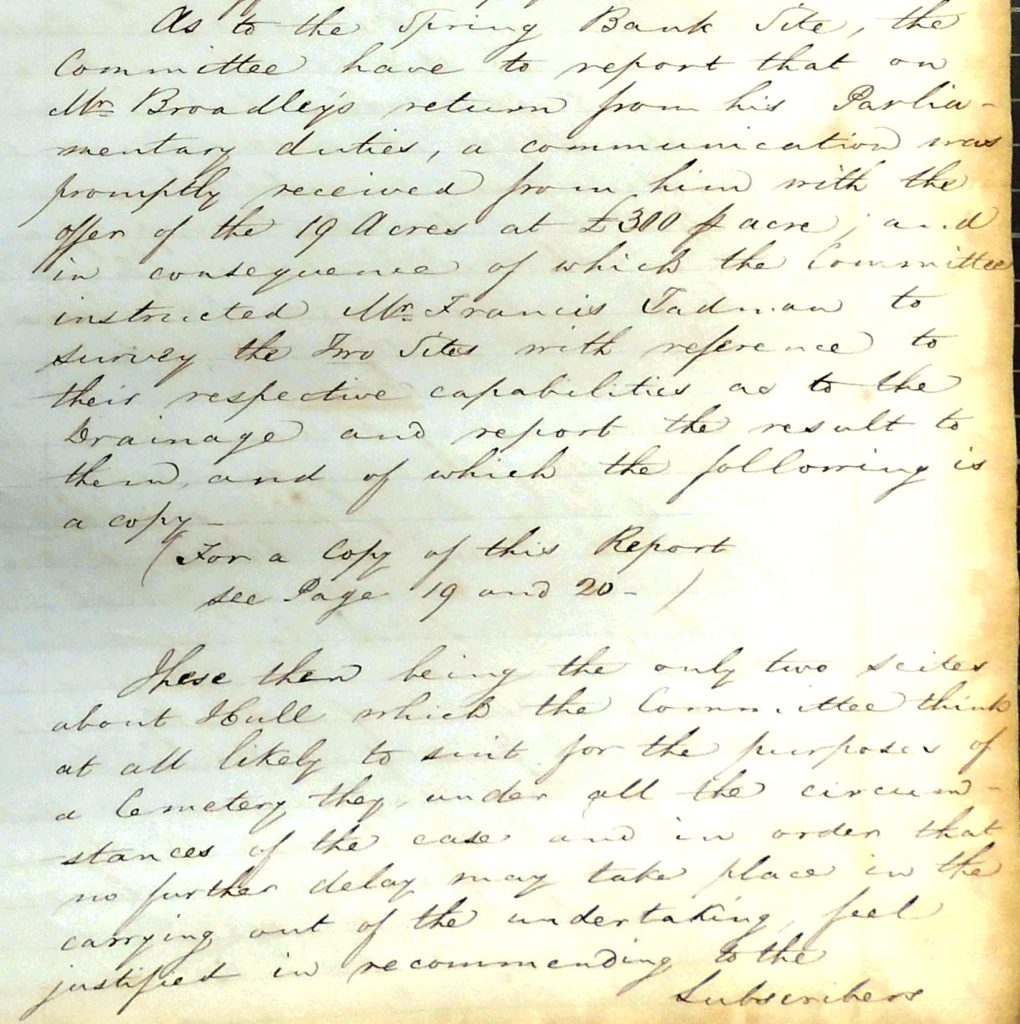 As to the Spring Bank Site, the
Committee have to report that on
Mr Broadley's return from his Parlia-
mentary duties, a communication was
promptly received from him with the
offer of the 19 Acres at £300 ⅌ acre, and
in consequence of which the Committee
instructed Mr Francis Tadman to
survey the Two Sites with reference to
their respective capabilities as to the
Drainage and report the result to
them, and of which the following is
a copy -
(For a Copy of this Report
see Page 19 and 20 - )
These then being the only two scites
about Hull which the Committee think
at all likely to suit for the purposes of
a Cemetery they, under all the circum-
stances of the case and in order that
no further delay may take place in the
carrying out of the undertaking, feel
justified in recommending to the
Subscribers